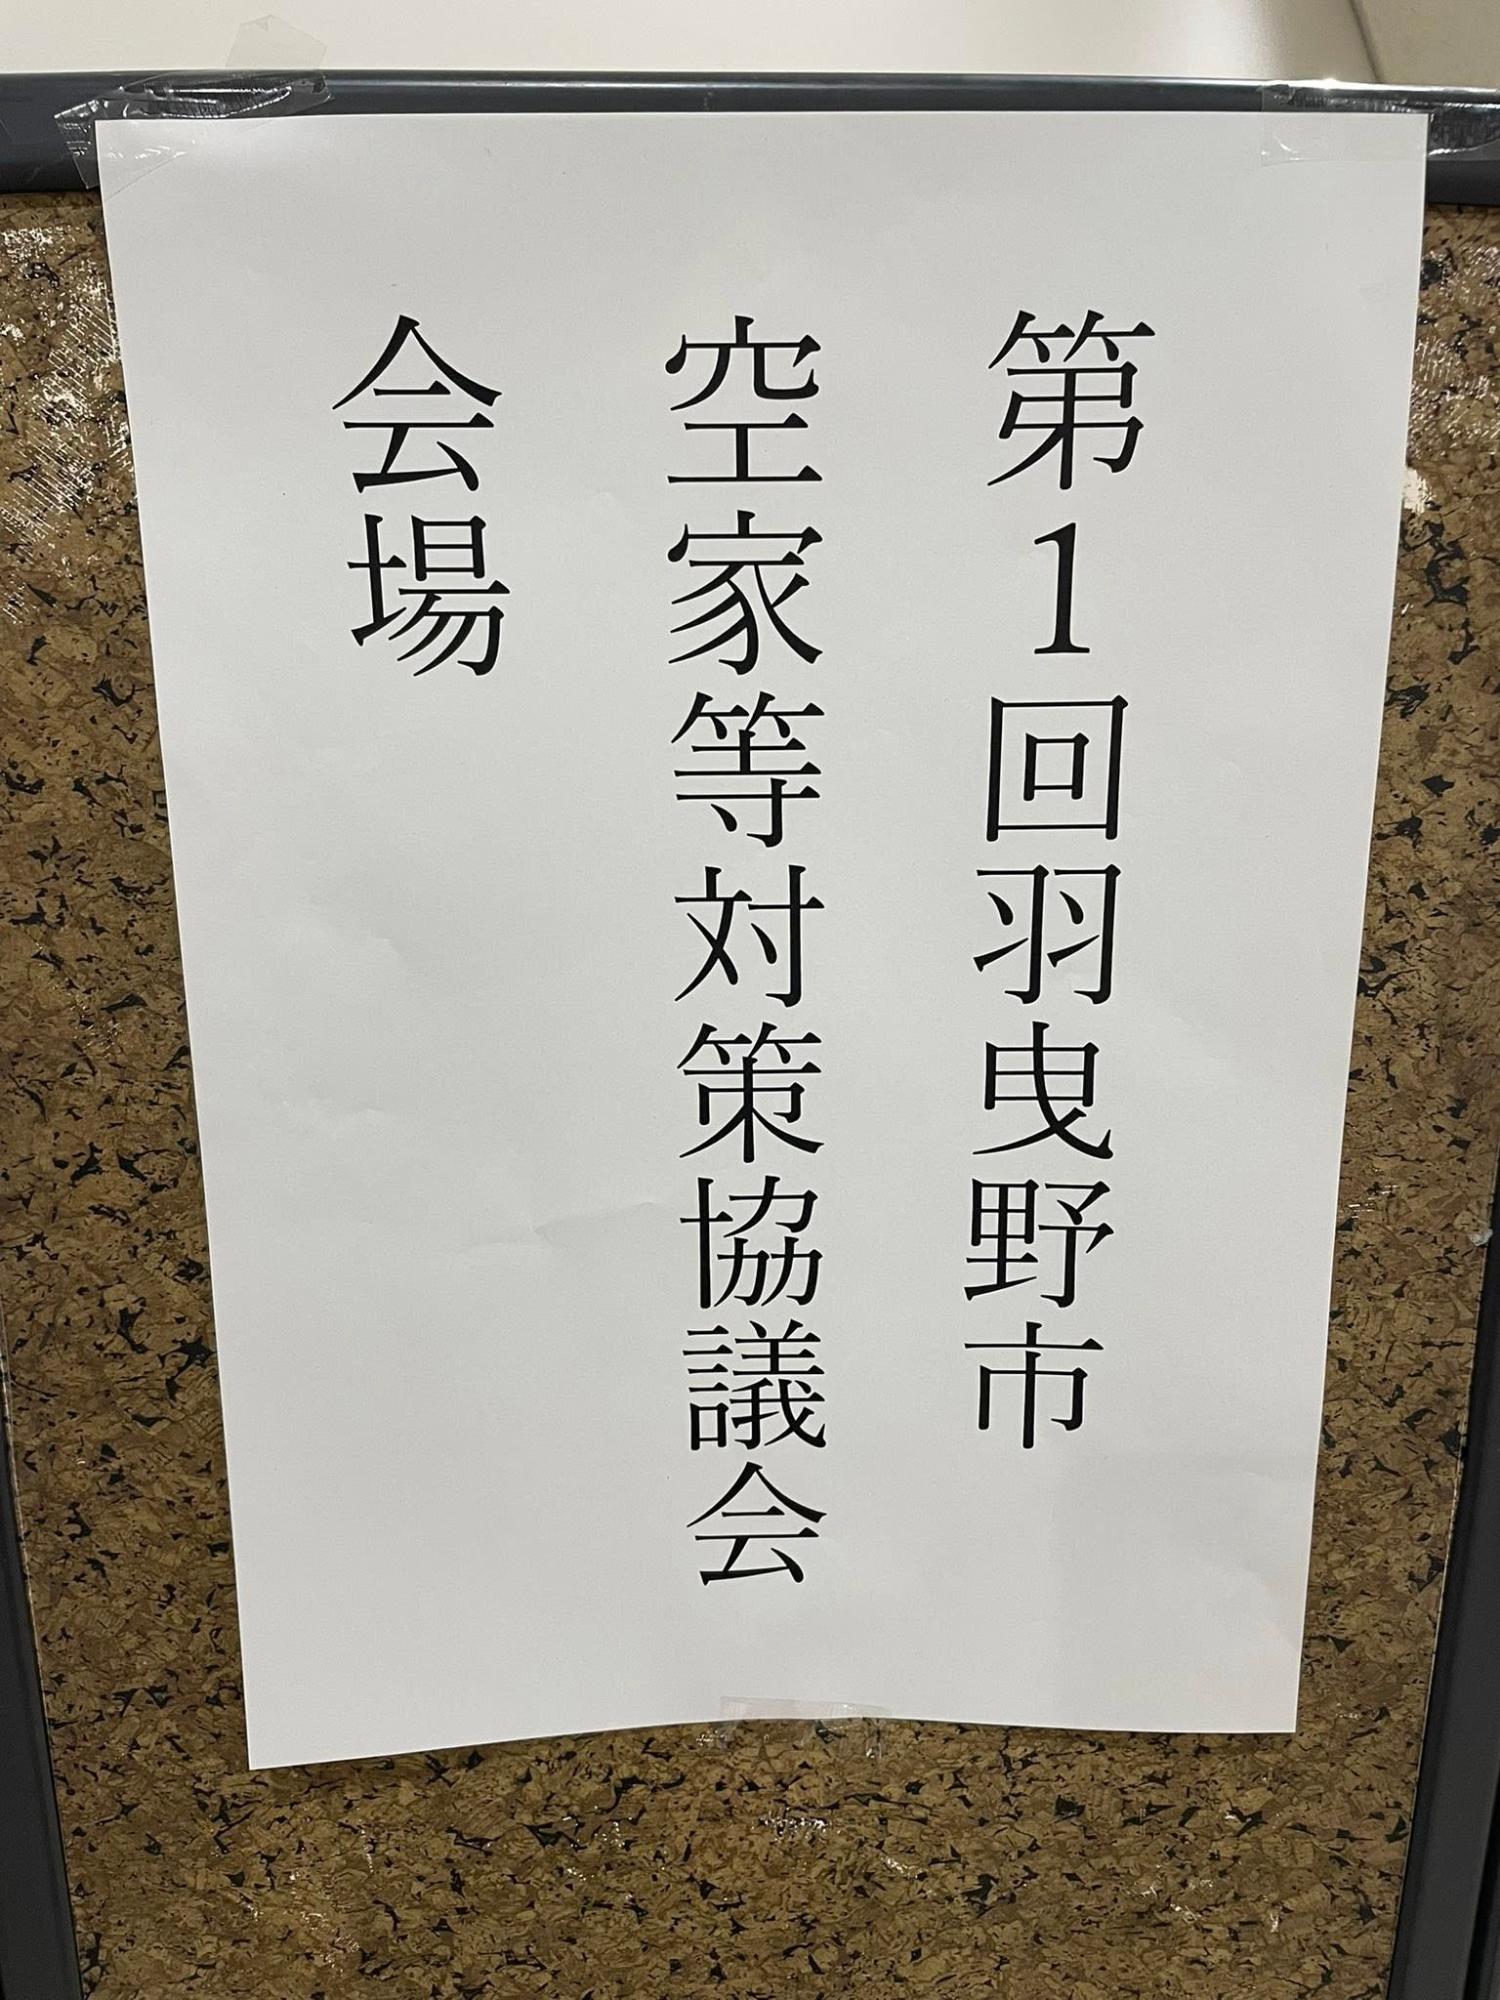 第1回羽曳野市
空家等対策協議会
会場